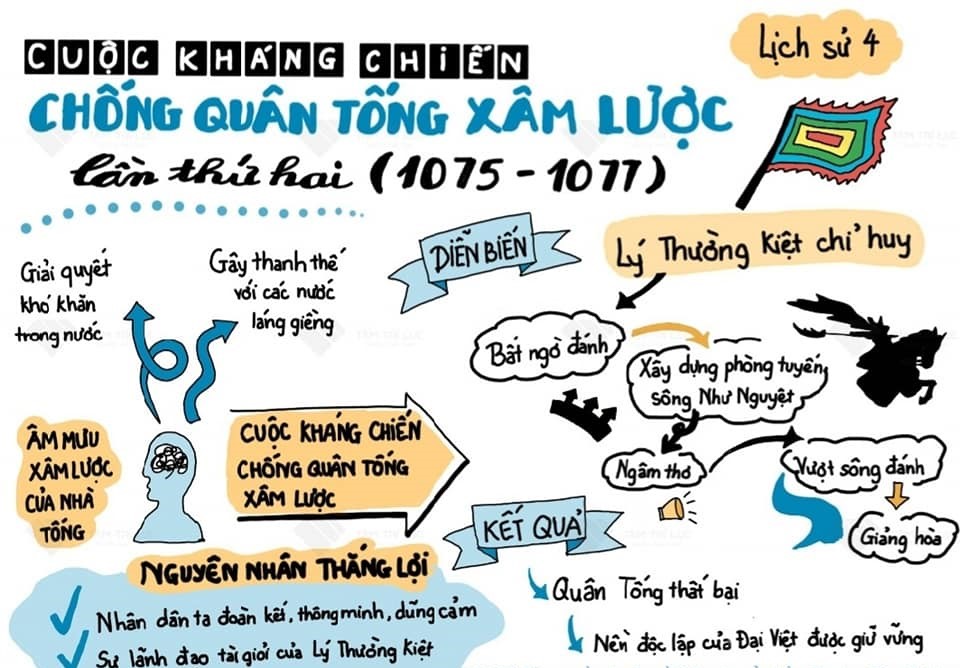 CUỘC KHÁNG CHIẾN
Lịch sử 4
CHỐNG QUÂN TỐNG XÂM LƯỢC
lần thứ hai (1075 - 1077)
Giải quyết
khó khăn
trong nước
Gây thanh thế
với các nước
láng giềng
ÂM MƯU
XÂM LƯỢC
CỦA NHÀ
TỐNG
CUỘC KHÁNG CHIẾN
CHỐNG QUÂN TỐNG
XÂM LƯỢC
DIỄN BIẾN
Lý Thường Kiệt chỉ huy
Bất ngờ đánh
Xây dựng phòng tuyến
sông Như Nguyệt
Ngâm thơ
Vượt sông đánh
Giảng hòa
KẾT QUẢ
Quân Tống thất bại
Nền độc lập của Đại Việt được giữ vững
NGUYÊN NHÂN THẮNG LỢI
Nhân dân ta đoàn kết, thông minh, dũng cảm
Sự lãnh đạo tài giỏi của Lý Thường Kiệt